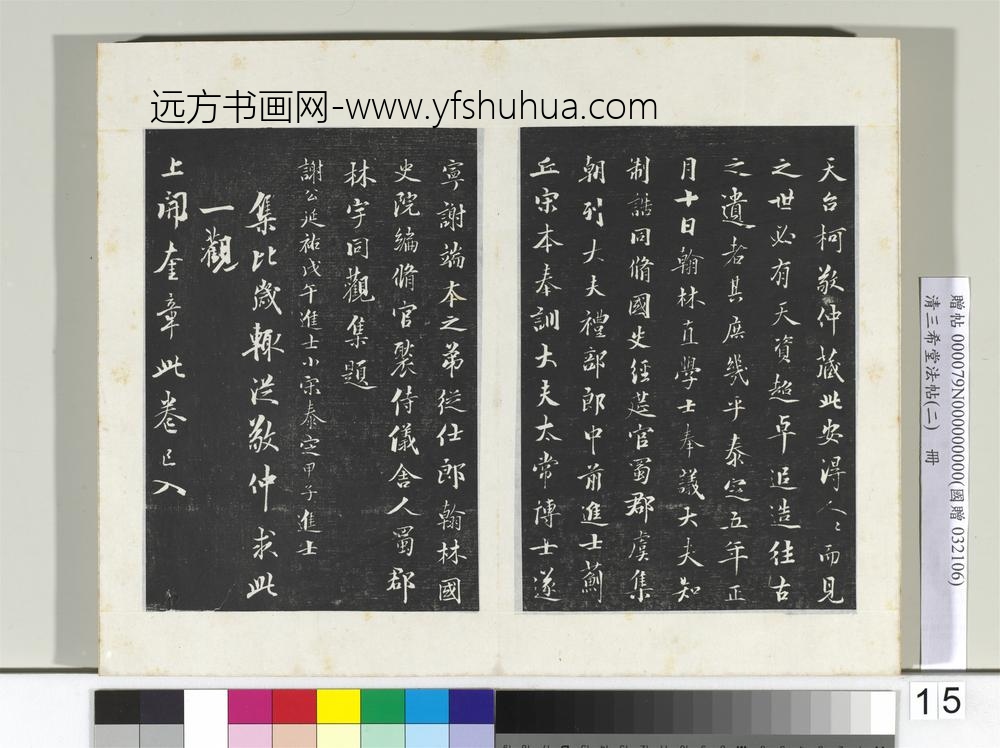 远方书画网-www.yfshuhua.com
天台柯敬仲藏此安得人〻而見
之世必有天資超卓追造往古
之遺者其庶幾乎泰定五年正
月十日翰林直學士奉議大夫知
制誥同脩國史經莚官蜀郡虞集
朝列大夫禮部郎中前進士薊
丘宋本奉訓大夫太常博士遂
寧謝端本之弟從仕郎翰林國
史院編脩官褧侍儀舍人蜀郡
林宇同觀集題
謝公延祐戊午進士小宋泰定甲子進士
集比歲輒從敬仲求此
一觀
上開奎章此卷已入
贈帖 000079N000000000(國贈 032106)
清三希堂法帖(二) 冊
15